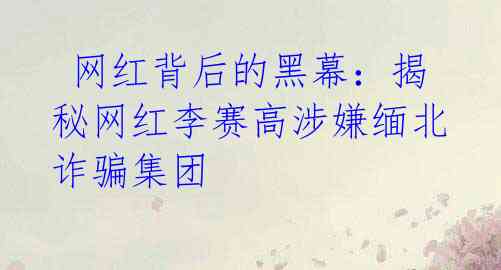 网红背后的黑幕：揭
秘网红李赛高涉嫌缅北
诈骗集团